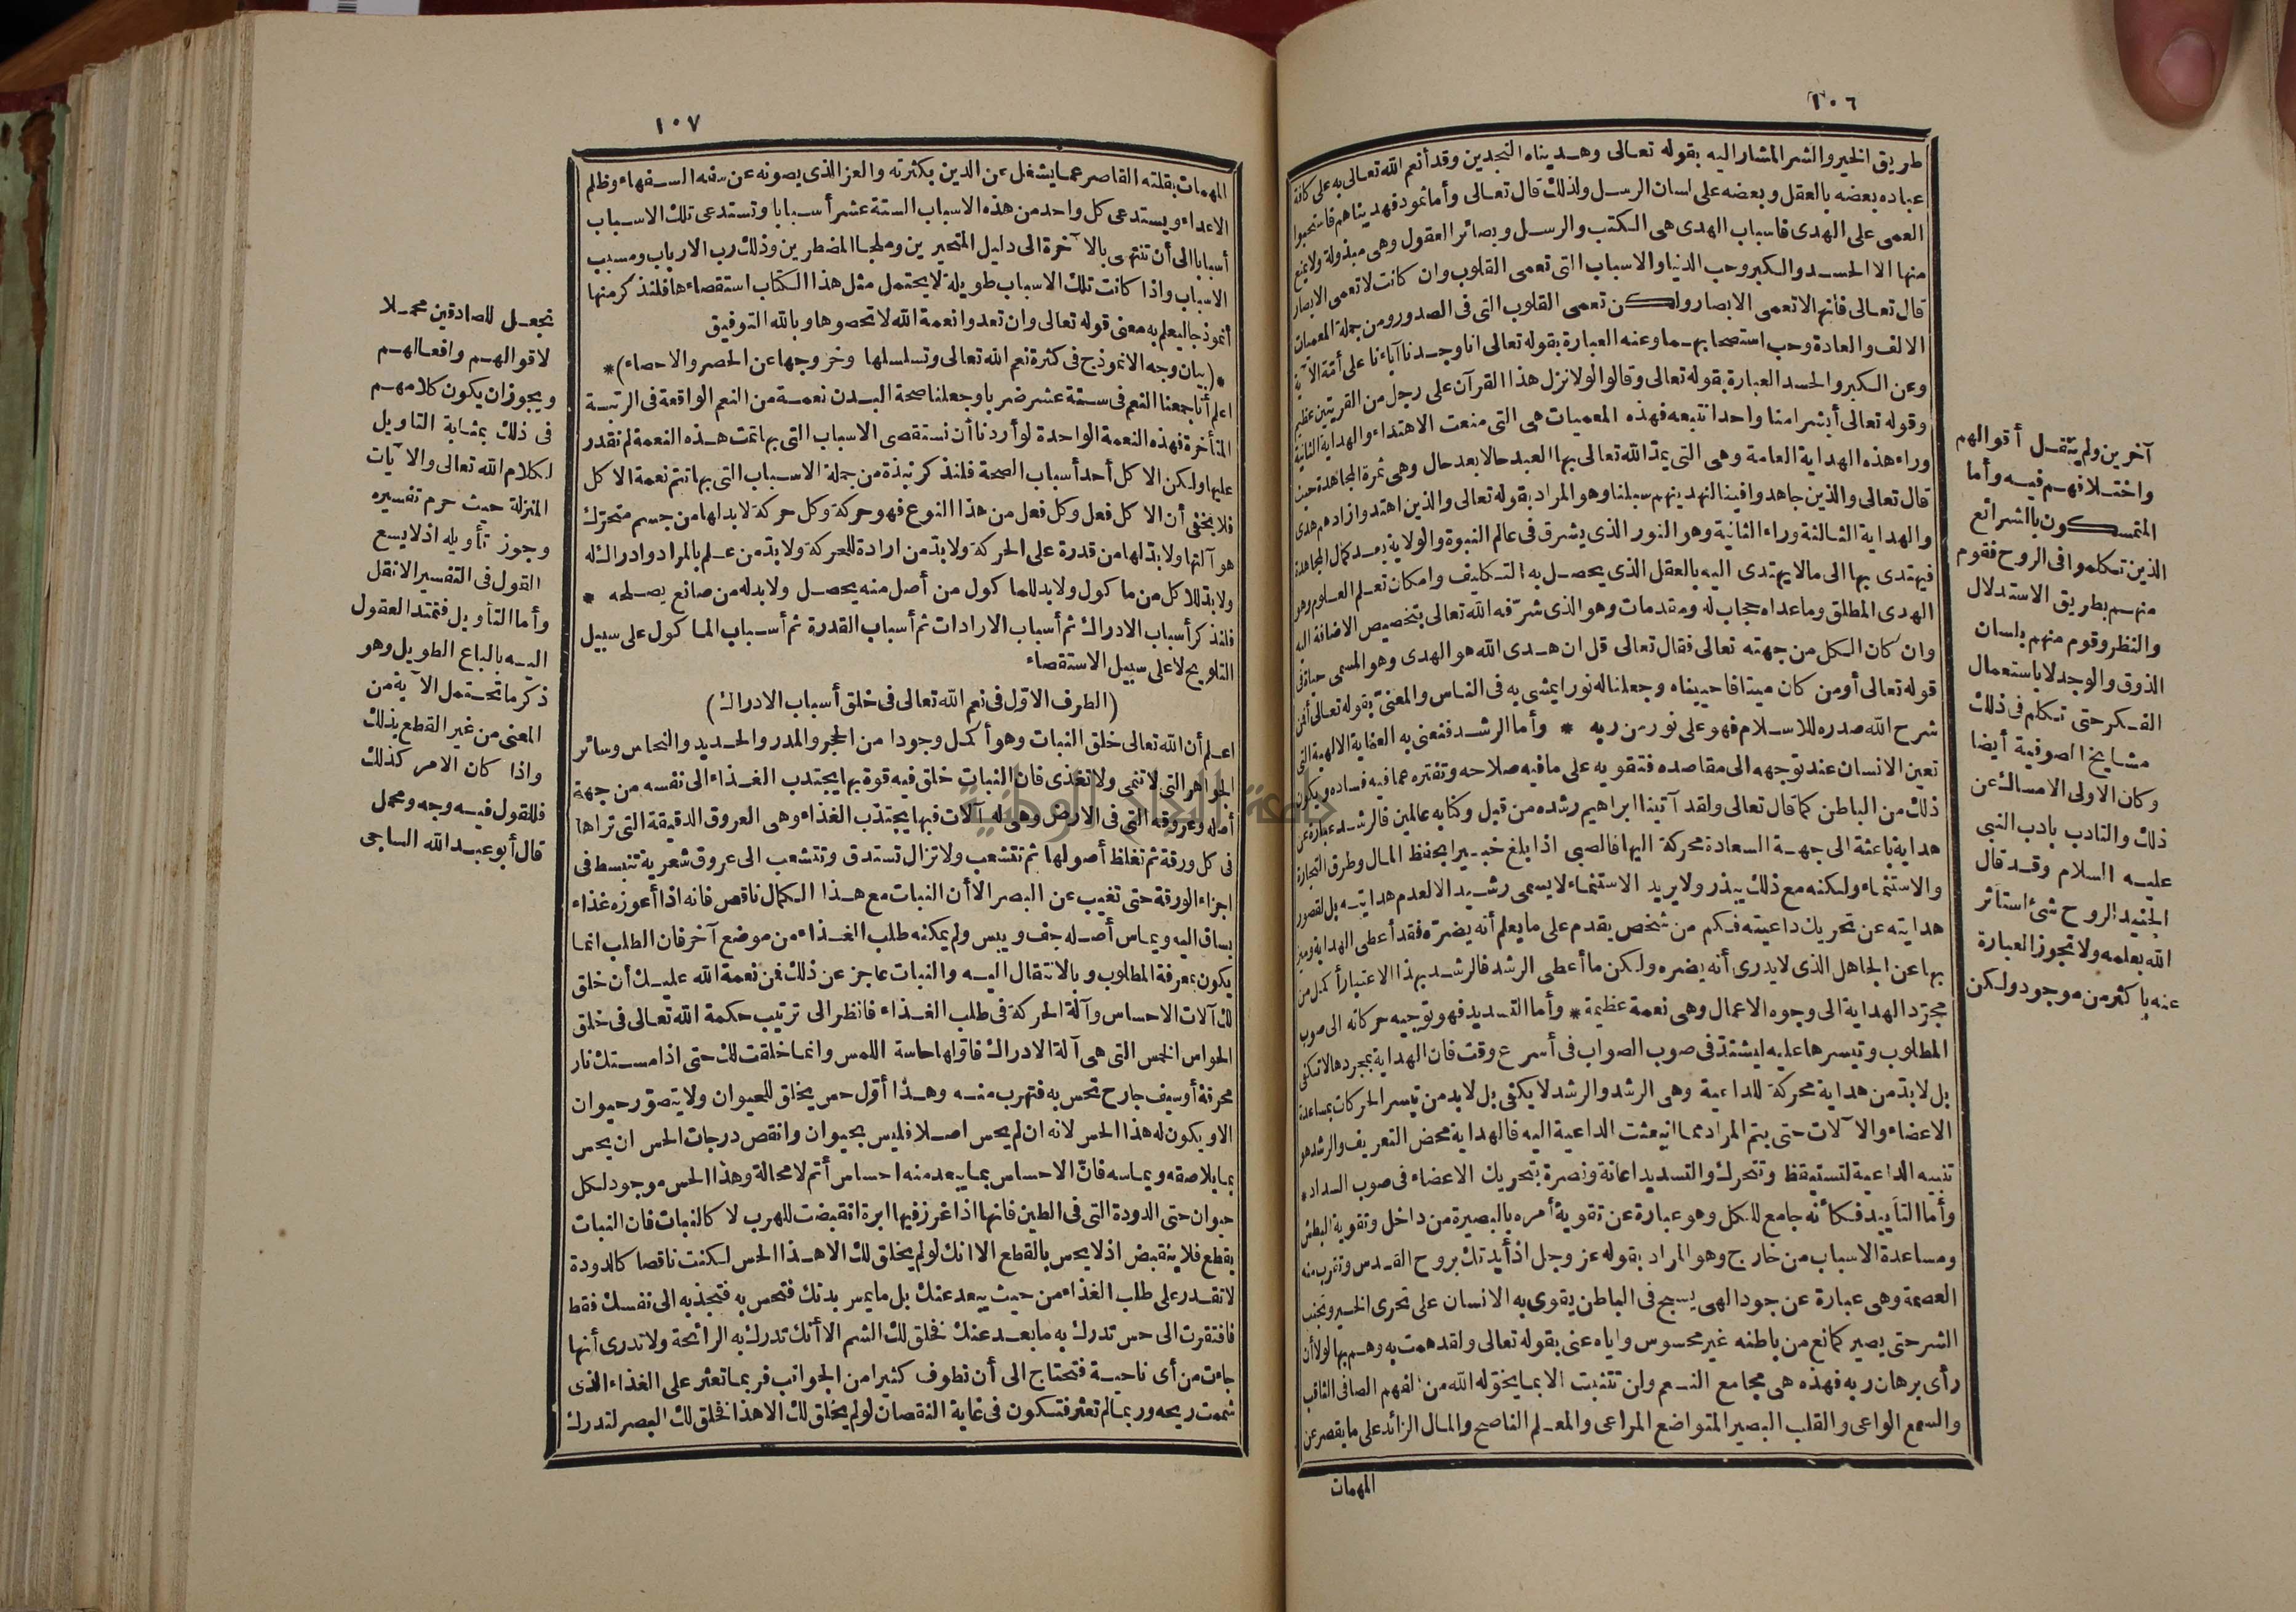 ١٠٦
طريق الخير والشر المشار اليه بقوله تعالى وهديناه النجدين وقد أنعم الله تعالى به على كافة
عباده بعضه بالعقل وبعضه على لسان الرسل ولذلك قال تعالى وأما ثمود فهديناهم فاستحبوا
العمى على الهدى فاسباب الهدى هى الكتب والرسل وبصائر العقول وهى مبذولة ولا يمنع
منها الا الحسد والكبر وحب الدنيا والاسباب التى تعمى القلوب وان كانت لا تعمى الابصار
قال تعالى فانها لا تعمى الابصار ولكن تعمى القلوب التى فى الصدور ومن جملة المعميات
الالف والعادة وحب استصحابهما وعنه العبارة بقوله تعالى انا وجدنا آباءنا على أمة الآية
وعن الكبر والحسد العبارة بقوله تعالى وقالوا لولا نزل هذا القرآن على رجل من القريتين عظيم
وقوله تعالى أبشرا منا واحدا نتبعه فهذه المعميات هى التى منعت الاهتداء والهداية الثانية
وراء هذه الهداية العامة وهى التى يمد الله تعالى بها العبد حالا بعد حال وهى ثمرة المجاهدة حيث
قال تعالى والذين جاهدوا فينا لنهدينهم سبلنا وهو المراد بقوله تعالى والذين اهتدوا زادهم هدى
والهداية الثالثة وراء الثانية وهو النور الذى يشرق فى عالم النبوة والولاية بعد كمال المجاهدة
فيهتدى بها الى ما لا يهتدى اليه بالعقل الذى يحصل به التكليف وامكان تعلم العلوم وهو
الهدى المطلق وما عداه حجاب له ومقدمات وهو الذى شرّفه الله تعالى بتخصيص الاضافة اليه
وان كان الكل من جهته تعالى فقال تعالى قل ان هدى الله هو الهدى وهو المسمى حياة فى
قوله تعالى أو من كان ميتا فاحييناه وجعلنا له نورا يمشى به فى الناس والمعنىّ بقوله تعالى أفمن
شرح الله صدره للاسلام فهو على نور من ربه * وأما الرشد فنعنى به العناية الالهية التى
تعين الانسان عند توجهه الى مقاصده فتقويه على ما فيه صلاحه وتفتره عما فيه فساده ويكون
ذلك من الباطن كما قال تعالى ولقد آتينا ابراهيم رشده من قبل وكنا به عالمين فالرشد عبارة عن
هداية باعثة الى جهة السعادة محركة اليها فالصبى اذا بلغ خبيرا بحفظ المال وطرق التجارة
والاستنماء ولكنه مع ذلك يبذر ولا يريد الاستنماء لا يسمى رشيدا لا لعدم هدايته بل لقصور
هدايته عن تحريك داعيته فكم من شخص يقدم على ما يعلم أنه يضرّه فقد أعطى الهداية وميز
بها عن الجاهل الذى لا يدرى أنه يضره ولكن ما أعطى الرشد فالرشد بهذا الاعتبار أكمل من
مجرّد الهداية الى وجوه الاعمال وهى نعمة عظيمة * وأما التسديد فهو توجيه حركاته الى صوب
المطلوب وتيسرها عليه ليشتدّ فى صوب الصواب فى أسرع وقت فان الهداية بمجردها لا تكفى
بل لا بدّ من هداية محركة للداعية وهى الرشد والرشد لا يكفى بل لا بد من تيسر الحركات بمساعدة
الاعضاء والآلات حتى يتم المراد مما انبعثت الداعية اليه فالهداية محض التعريف والرشد هو
تنبيه الداعية لتستيقظ وتتحرك والتسديد اعانة ونصرة بتحريك الاعضاء فى صوب السداد *
وأما التأييد فكأنه جامع للكل وهو عبارة عن تقوية أمره بالبصيرة من داخل وتقوية البطش
ومساعدة الاسباب من خارج وهو المراد بقوله عز وجل اذ أيدتك بروح القدس وتقرب منه
العصمة وهى عبارة عن جود الهى يسبح فى الباطن يقوى به الانسان على تحرى الخير وتجنب
الشر حتى يصير كمانع من باطنه غير محسوس واياه عنى بقوله تعالى ولقد همت به وهم بها لولا أن
رأى برهان ربه فهذه هى مجامع النعم ولن تتثبت الا بما يخوّله الله من الفهم الصافى الثاقب
والسمع الواعى والقلب البصير المتواضع المراعى والمعلم الناصح والمال الزائد على ما يقصر عن
المهمات
آخرين ولم ينقل أقوالهم
واختلافهم فيه وأما
المتمسكون بالشرائع
الذين تكلموا فى الروح فقوم
منهم بطريق الاستدلال
والنظر وقوم منهم بلسان
الذوق والوجد لا باستعمال
الفكر حتى تكلم فى ذلك
مشايخ الصوفية أيضا
وكان الاولى الامساك عن
ذلك والتادب بادب النبى
عليه السلام وقد قال
الجنيد الروح شئ استأثر
الله بعلمه ولا تجوز العبارة
عنه باكثر من موجود ولكن
١٠٧
المهمات بقلته القاصر عما يشغل عن الدين بكثرته والعز الذى يصونه عن سفه السفهاء وظلم
الاعداء ويستدعى كل واحد من هذه الاسباب الستة عشر أسبابا وتستدعى تلك الاسباب
أسبابا الى أن تنتهى بالآخرة الى دليل المتحيرين وملجا المضطرين وذلك رب الارباب ومسبب
الاسباب واذا كانت تلك الاسباب طويلة لا يحتمل مثل هذا الكتاب استقصاءها فلنذكر منها
أنموذجا ليعلم به معنى قوله تعالى وان تعدوا نعمة الله لا تحصوها وبالله التوفيق
*(بيان وجه الانموذج فى كثرة نعم الله تعالى وتسلسلها وخروجها عن الحصر والاحصاء)*
اعلم أنا جمعنا النعم فى ستة عشر ضربا وجعلنا صحة البدن نعمة من النعم الواقعة فى الرتبة
المتأخرة فهذه النعمة الواحدة لو أردنا أن نستقصى الاسباب التى بها تمت هذه النعمة لم نقدر
عليها ولكن الاكل أحد أسباب الصحة فلنذكر نبذة من جملة الاسباب التى بها تتم نعمة الاكل
فلا يخفى أن الاكل فعل وكل فعل من هذا النوع فهو حركة وكل حركة لا بد لها من جسم متحرّك
هو آلتها ولا بدّ لها من قدرة على الحركة ولا بدّ من ارادة للحركة ولا بدّ من علم بالمراد وادراك له
ولا بدّ للاكل من ماكول ولا بد للماكول من أصل منه يحصل ولا بد له من صانع يصلحه *
فلنذكر أسباب الادراك ثم أسباب الارادات ثم أسباب القدرة ثم أسباب الماكول على سبيل
التلويح لا على سبيل الاستقصاء
(الطرف الاوّل فى نعم الله تعالى فى خلق أسباب الادراك)
اعلم أن الله تعالى خلق النبات وهو أكمل وجودا من الحجر والمدر والحديد والنحاس وسائر
الجواهر التى لا تنمى ولا تغذى فان النبات خلق فيه قوة بها يجتذب الغذاء الى نفسه من جهة
أصله وعروقه التى فى الارض وهى له آلات فبها يجتذب الغذاء وهى العروق الدقيقة التى تراها
فى كل ورقة ثم تغلظ أصولها ثم تتشعب ولا تزال تستدق وتتشعب الى عروق شعرية تنبسط فى
اجزاء الورقة حتى تغيب عن البصر الا أن النبات مع هذا الكمال ناقص فانه اذا أعوزه غذاء
يساق اليه ويماس أصله جف ويبس ولم يمكنه طلب الغذاء من موضع آخر فان الطلب انما
يكون بمعرفة المطلوب وبالانتقال اليه والنبات عاجز عن ذلك فمن نعمة الله عليك أن خلق
لك آلات الاحساس وآلة الحركة فى طلب الغذاء فانظر الى ترتيب حكمة الله تعالى فى خلق
الحواس الخمس التى هى آلة الادراك فاوّلها حاسة اللمس وانما خلقت لك حتى اذا مستك نار
محرقة أو سيف جارح تحس به فتهرب منه وهذا أوّل حس يخلق للحيوان ولا يتصوّر حيوان
الا ويكون له هذا الحس لانه ان لم يحس اصلا فليس بحيوان وانقص درجات الحس ان يحس
بما يلاصقه ويماسه فانّ الاحساس بما يبعد منه احساس أتم لا محالة وهذا الحس موجود لكل
حيوان حتى الدودة التى فى الطين فانها اذا غرز فيها ابرة انقبضت للهرب لا كالنبات فان النبات
يقطع فلا ينقبض اذ لا يحس بالقطع الا انك لو لم يخلق لك الا هذا الحس لكنت ناقصا كالدودة
لا تقدر على طلب الغذاء من حيث يبعد عنك بل ما يمس بدنك فتحس به فتجذبه الى نفسك فقط
فافتقرت الى حس تدرك به ما بعد عنك فخلق لك الشم الا أنك تدرك به الرائحة ولا تدرى أنها
جاءت من أى ناحية فتحتاج الى أن تطوف كثيرا من الجوانب فربما تعثر على الغذاء الذى
شممت ريحه وربما لم تعثر فتكون فى غاية النقصان لو لم يخلق لك الا هذا فخلق لك البصر لتدرك
تجعل للصادقين محملا
لاقوالهم وافعالهم
ويجوز ان يكون كلامهم
فى ذلك بمثابة التاويل
لكلام الله تعالى والآيات
المنزلة حيث حرم تفسيره
وجوز تأويله اذ لا يسع
القول فى التفسير الا نقل
وأما التأويل فتمتد العقول
اليه بالباع الطويل وهو
ذكر ما تحتمل الآية من
المعنى من غير القطع بذلك
واذا كان الامر كذلك
فللقول فيه وجه ومحمل
قال أبو عبد الله الساجى